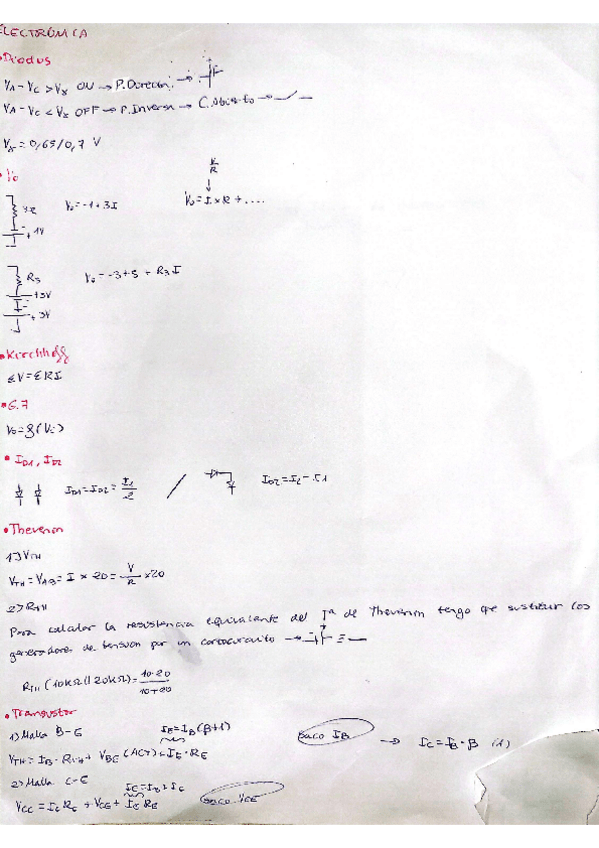 ELECTRÓNICA
• Diodos
VA - VC > Vγ ON → P. Directa →
VA - VC < Vγ OFF → P. Inversa → C. Abierto →
Vγ = 0,65/0,7 V
• Vo
V/R
↓
Vo = I x R + ....
Vo = -1 + 3I
+ 1V
R3
Vo = -3 + 5 + R3 I
+ 3V
• Kirchhoff
ΣV = ΣRI
• G.7
• ID1, ID2
ID1 = ID2 = I1/2 /
• Thevenin
1) VTH
VTH = VAB = I x 20 = V/R x 20
2) RTH
Para calcular la resistencia equivalente del Tª de Thevenin tengo que sustituir los
generadores de tension por un cortocircuito →
RTH (10KΩ || 20KΩ) = 10·20/10+20
• Transistor
1) Malla B-E IE = IB (β+1) saco IB → IC = IB · β (1)
VTH = IB · RTH + VBE (ACT) + IE · RE
2) Malla C-E
VCC = IC RC + VCE + IE RE saco VCE